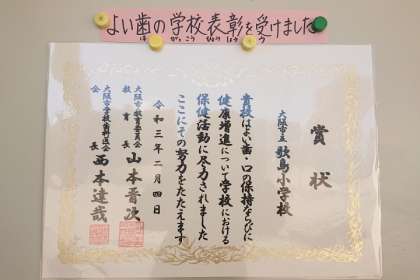 よい歯の学校表彰を受けました
は がっこう ひょうしょう う
賞状
大阪市立 歌島小学校
貴校はよい歯・口の保持ならびに
健康増進について学校における
保健活動に尽力されました
ここにその努力をたたえます
令和三年二月四日
大阪市教育委員会
教育長 山本晋次
大阪市学校歯科医会
会長 西本達哉